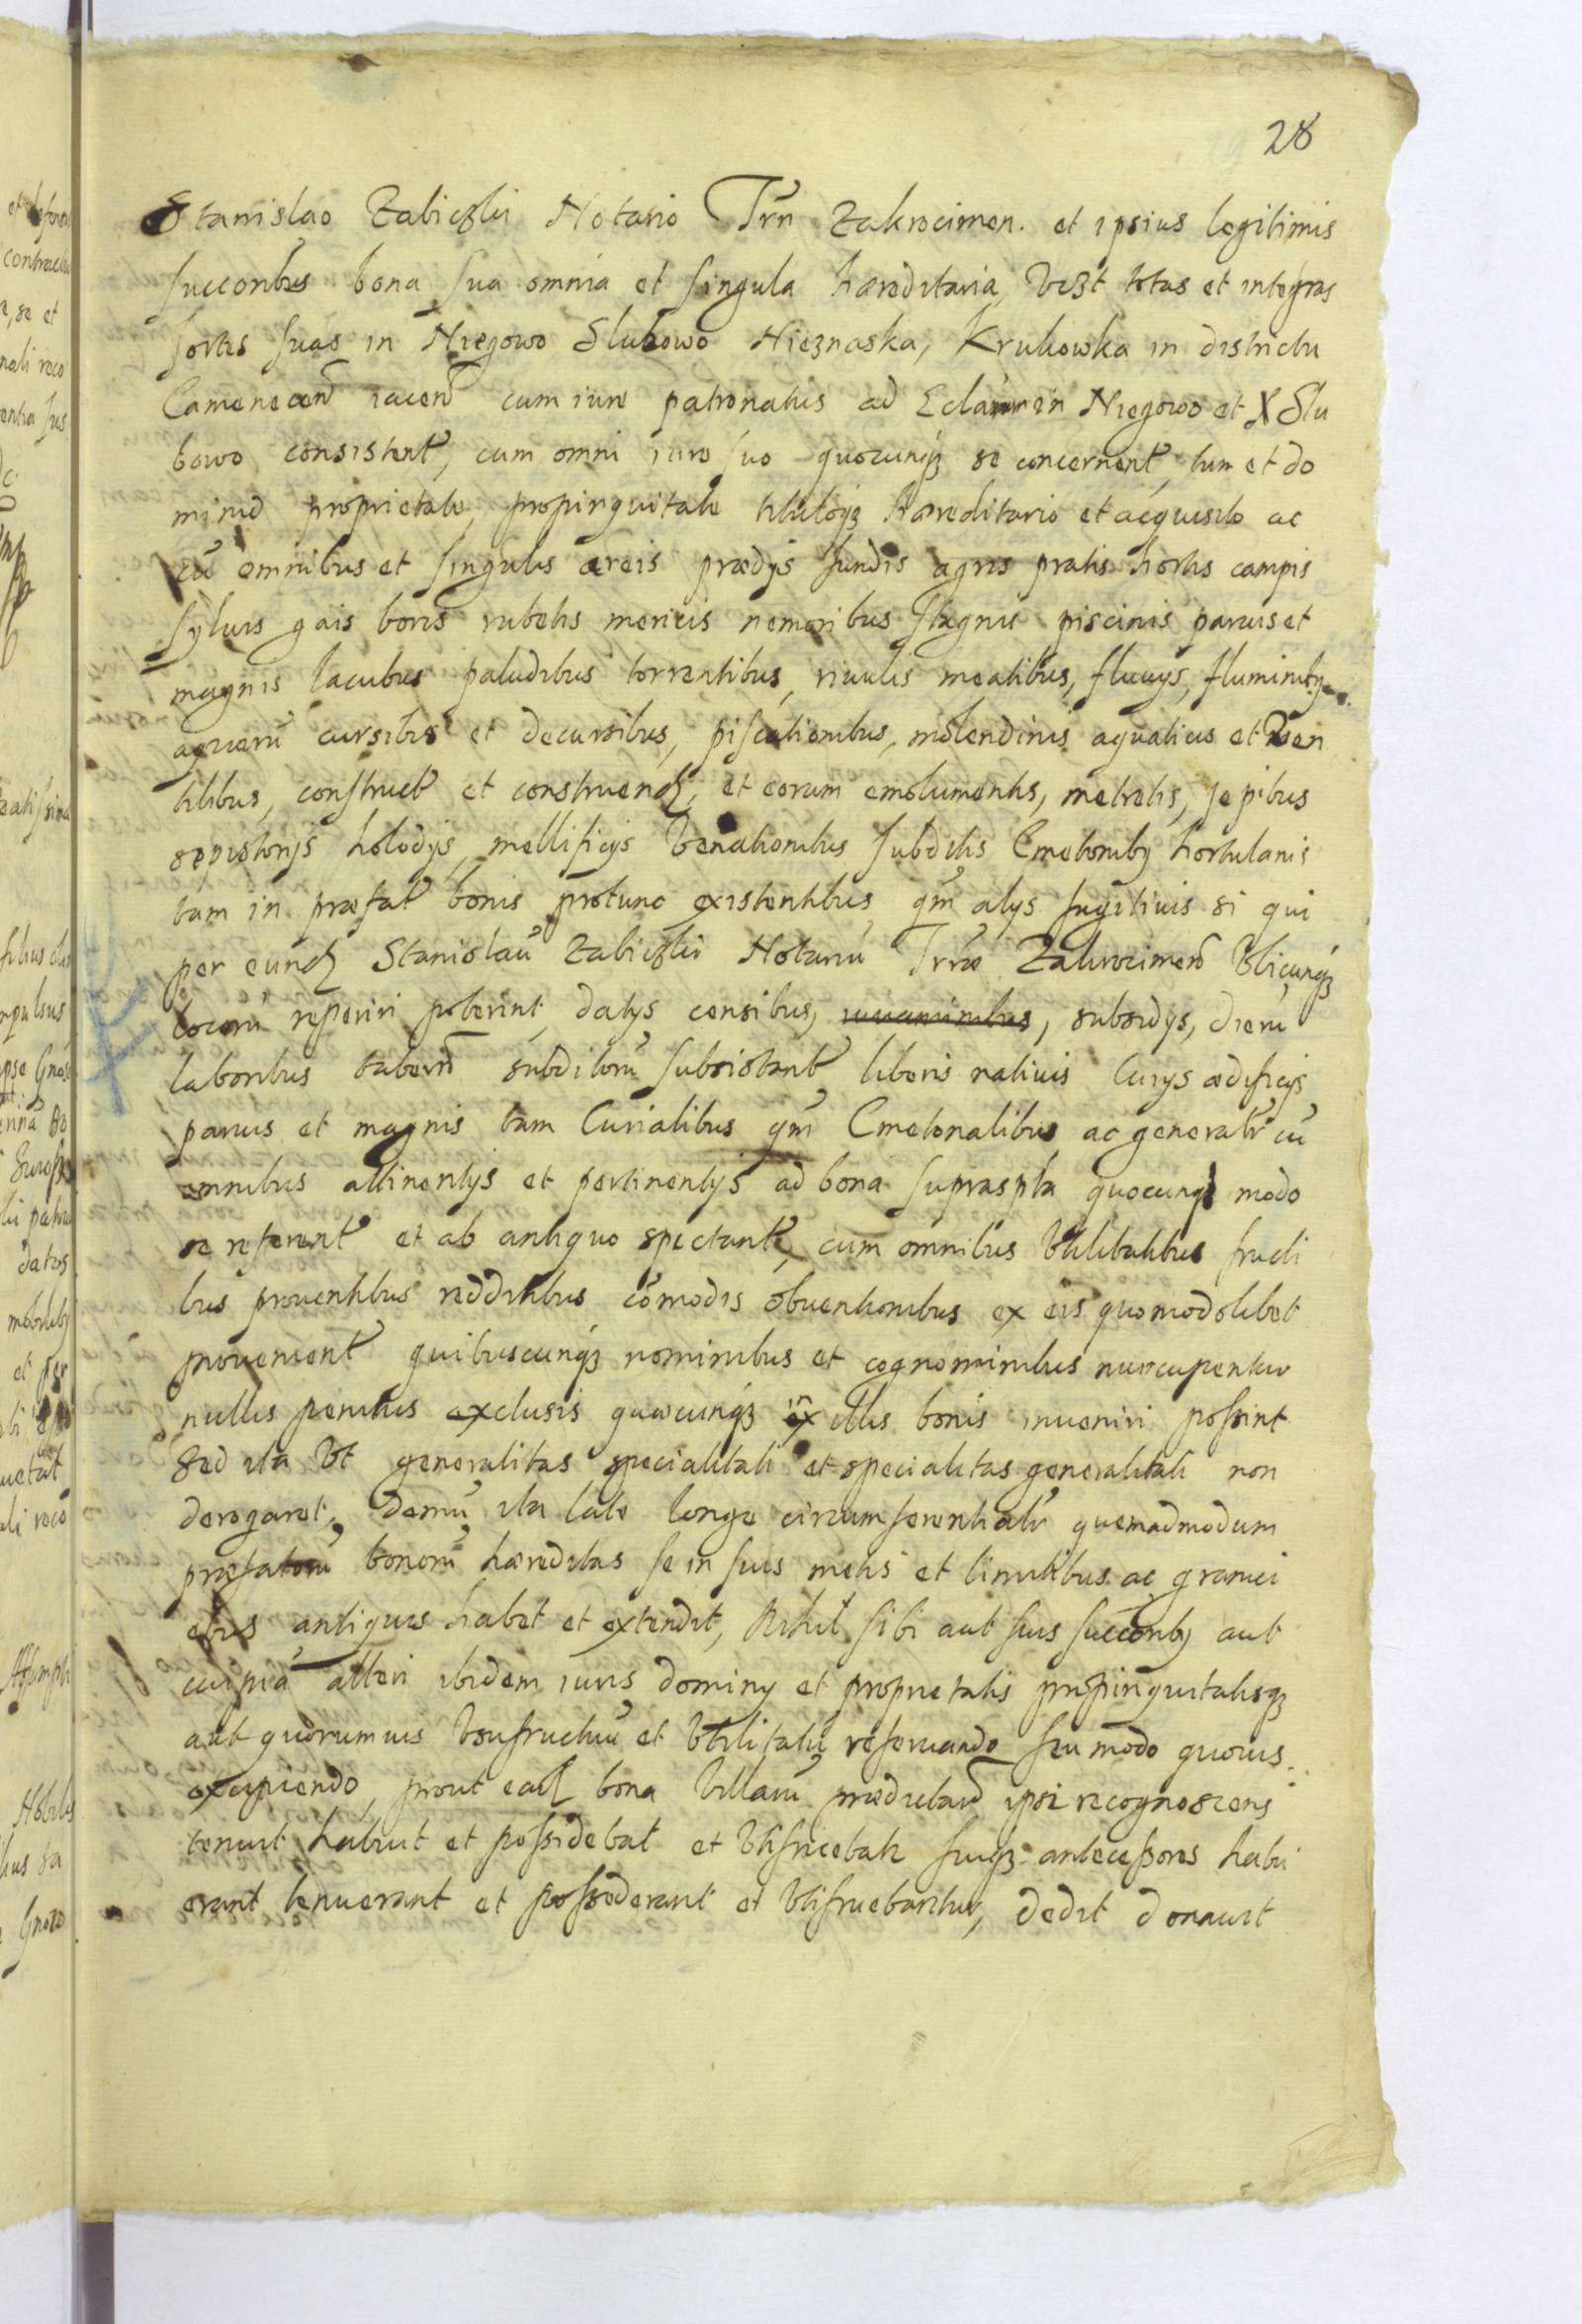 28
Stanislao Zabiczki Notario Trrn Zakrocimen. et ipsius legitimis
succoribus bona sua omnia et singula hæreditaria, vczt totas et integras
sortes suas in Niegowo Slubowo Nieznaska, Krukowka in districtu
Camenecen iacen cum iure patronatus ad Eclam in Niegowo et Slu
bowo consistent, cum omni iure suo quocunq se concernent, tum et do
minio proprietate, propinquitate tituloq hæreditario et acquisito ac
cũ omnibus et singulis areis prædijs fundis agris pratis hortis campis
syluis gais boris rubetis mericis nemoribus stagnis piscinis paruis et
magnis lacubus paludibus torrentibus, riuulis meatibus, fluuijs, fluminibq
aquarũ cursibus et decursibus, piscationibus, molendinis aquaticis et ven
tilibus, construct et construend, et eorum emolumentis, metretis, sepibus
sepistorijs holodijs, mellificijs venationibus subditis Cmetonibq hortulanis
tam in præfat bonis protunc existentibus, qm alijs fugitiuis si qui
per eund Stanislaũ Zabiczki Notariũ Trræ Zakrocimen vbicunq
locorũ reperiri poterint, datijs censibus, iuuaminibus, subsidijs, dierũ
laboribus tabern subditorũ subsistant liberis natiuis Curijs ædificijs
paruis et magnis tam Curialibus qm Cmetonalibus ac generalr cũ
omnibus attinentijs et pertinentijs ad bona suprascpta quocunq modo
se referent et ab antiquo spectant, cum omnibus vtilitatibus fructi
bus prouentibus redditibus cõmodis obuentionibus ex eis quomodolibet
prouenient quibuscunq nominibus et cognominibus nuncupentur
nullis penitus exclusis quæcunq in illis bonis inueniri possint
Sed ita vt generalitas specialitati et specialitas generalitati non
derogaret, demũ ita late longe circumferentialr quemadmodum
præfatorũ bonorũ hæreditas se in suis metis et limitibus ac granici
ebus antiquis habet et extendit, Nihil sibi aut suis succoribq aut
cuipiã alteri ibidem iuris dominij et proprietatis propinquitatisq
aut quorumuis vsufructuũ et vtilitatũ reseruando seu modo quouis
excipiendo, prout ead bona villarũ prædictarũ ipsi recognoscens
tenuit habuit et possidebat et vtifruebatr suiq antecessores habu
erant tenuerant et possederant et vtifruebantur, dedit donauit